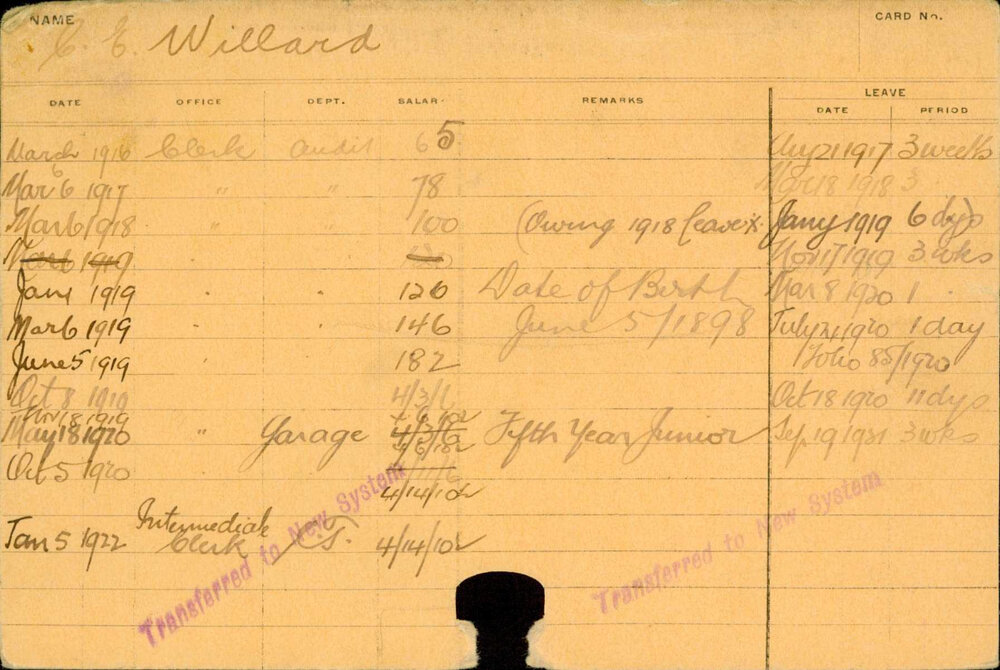 NAME
C. E. Willard
CARD No.
DATE OFFICE DEPT. SALARY REMARKS LEAVE
DATE PERIOD
March 1916 Clerk Audit 65 Aug 21 1917 3 weeks
Mar 6 1917 " " 78 Nov 18 1918 3
Mar 6 1918 " " 100 (Owing 1918 leave Jany 1919 6 dys
Mar 6 1919 Nov 17 1919 3 wks
Jany 1919 " " 126 Date of Birth Mar 8 1920 1 "
Mar 6 1919 " " 146 June 5/1898 July 24 1920 1 day
June 5 1919 " 182 Folio 85/1920
Oct 8 1919 4/3/6 Oct 18 1920 11 dys
Nov 18 1919
May 18 1920 " Garage 4/3/6 Fifth Year Junior Sep 19 1921 3 wks
Oct 5 1920
4/14/10½
Jan 5 1922 Intermediate Clerk C.T. 4/14/10½
Transferred to New System
Transferred to New System